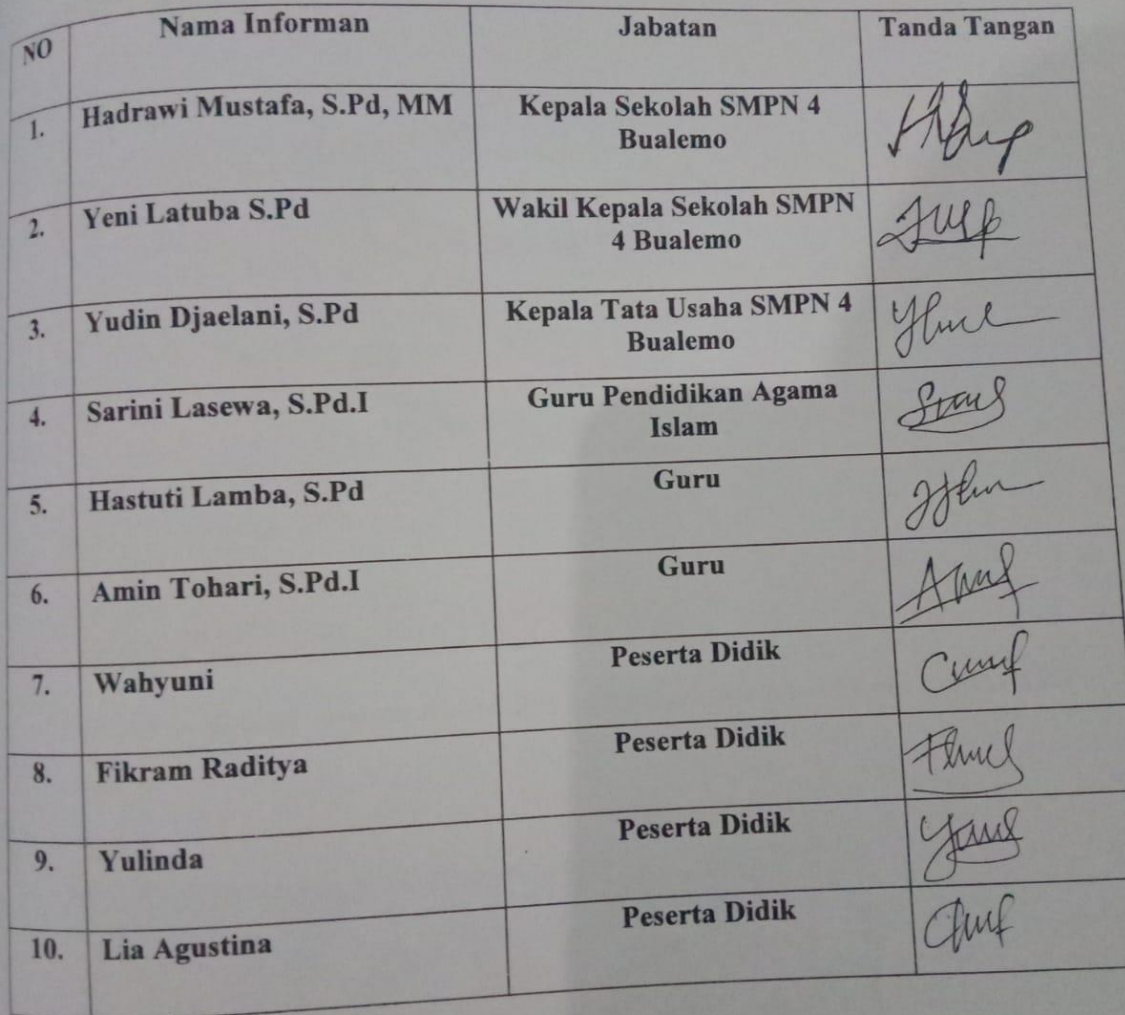 NO
Nama Informan
Jabatan
Tanda Tangan
1.
Hadrawi Mustafa, S.Pd, MM
Kepala Sekolah SMPN 4
Bualemo
2.
Yeni Latuba S.Pd
Wakil Kepala Sekolah SMPN
4 Bualemo
3.
Yudin Djaelani, S.Pd
Kepala Tata Usaha SMPN 4
Bualemo
4.
Sarini Lasewa, S.Pd.I
Guru Pendidikan Agama
Islam
5.
Hastuti Lamba, S.Pd
Guru
6.
Amin Tohari, S.Pd.I
Guru
7.
Wahyuni
Peserta Didik
8.
Fikram Raditya
Peserta Didik
9.
Yulinda
Peserta Didik
10.
Lia Agustina
Peserta Didik